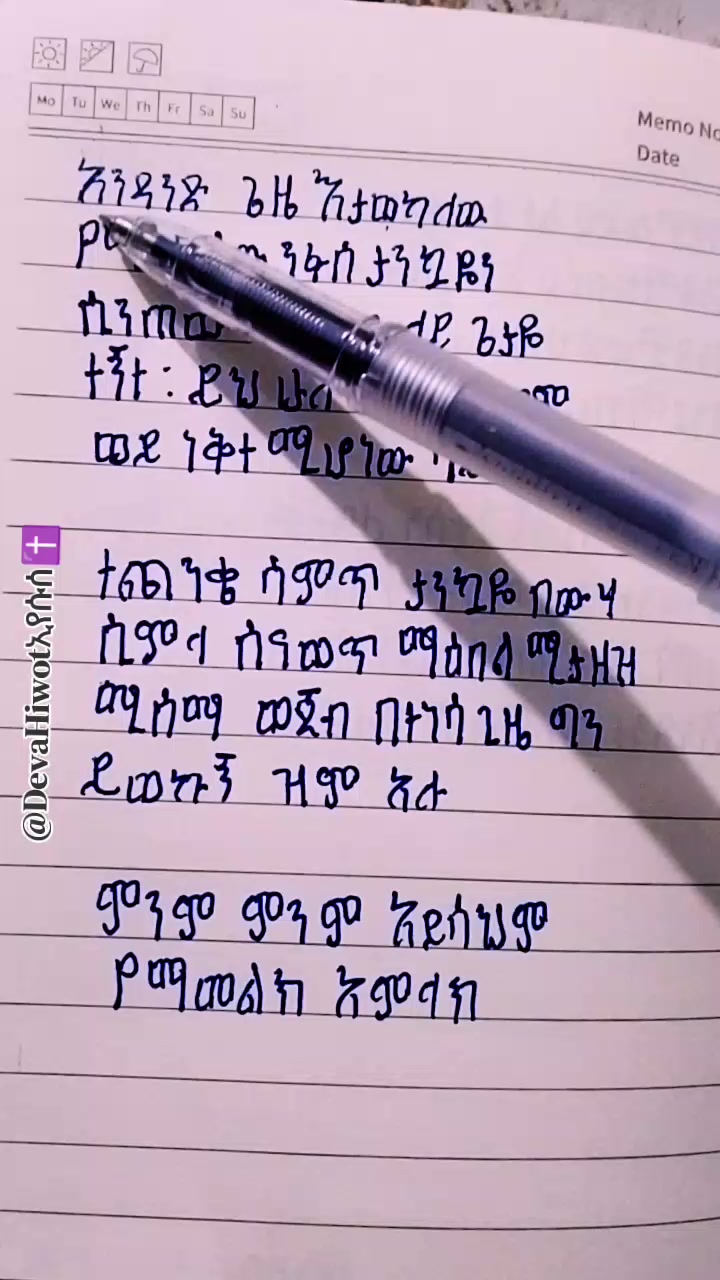 Mo Tu We Th Fr Sa Su
Memo No
Date
አንዳንድ ጌዜ እታወካለው
ንፋስ ታንኳዬን
ሲንጠ ጌታዬ
ተኝተ : ይህ ሁሉ
ወይ ነቅተ ሚሆነው
ተጨንቄ ሳምጥ ታንኳዬ በውሃ
ሲምላ ሰናወጥ ማዕበል ሚታዘዝ
ሚሰማ ወጀብ በተነሳ ጊዜ ግን
ይመኑኝ ዝም አታ
ምንም ምንም አይሳህም
የማመልክ አምላክ
@DevaHiwotኢየሱስ